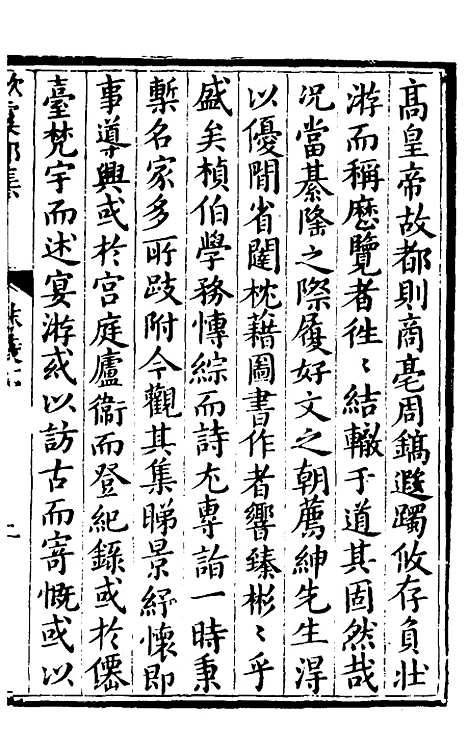 高皇帝故都則商亳周鎬遐躅攸存負壯
游而稱歷覽者徃〻結轍于道其固然哉
况當綦隆之際履好文之朝薦紳先生得
以優閒省闥枕藉圖書作者響臻彬〻乎
盛矣楨伯學務慱綜而詩尤專詣一時秉
槧名家多所跂附今觀其集睇景紓懷即
事導興或於宫庭廬衞而登紀錄或於僊
臺梵宇而述宴游或以訪古而寄慨或以